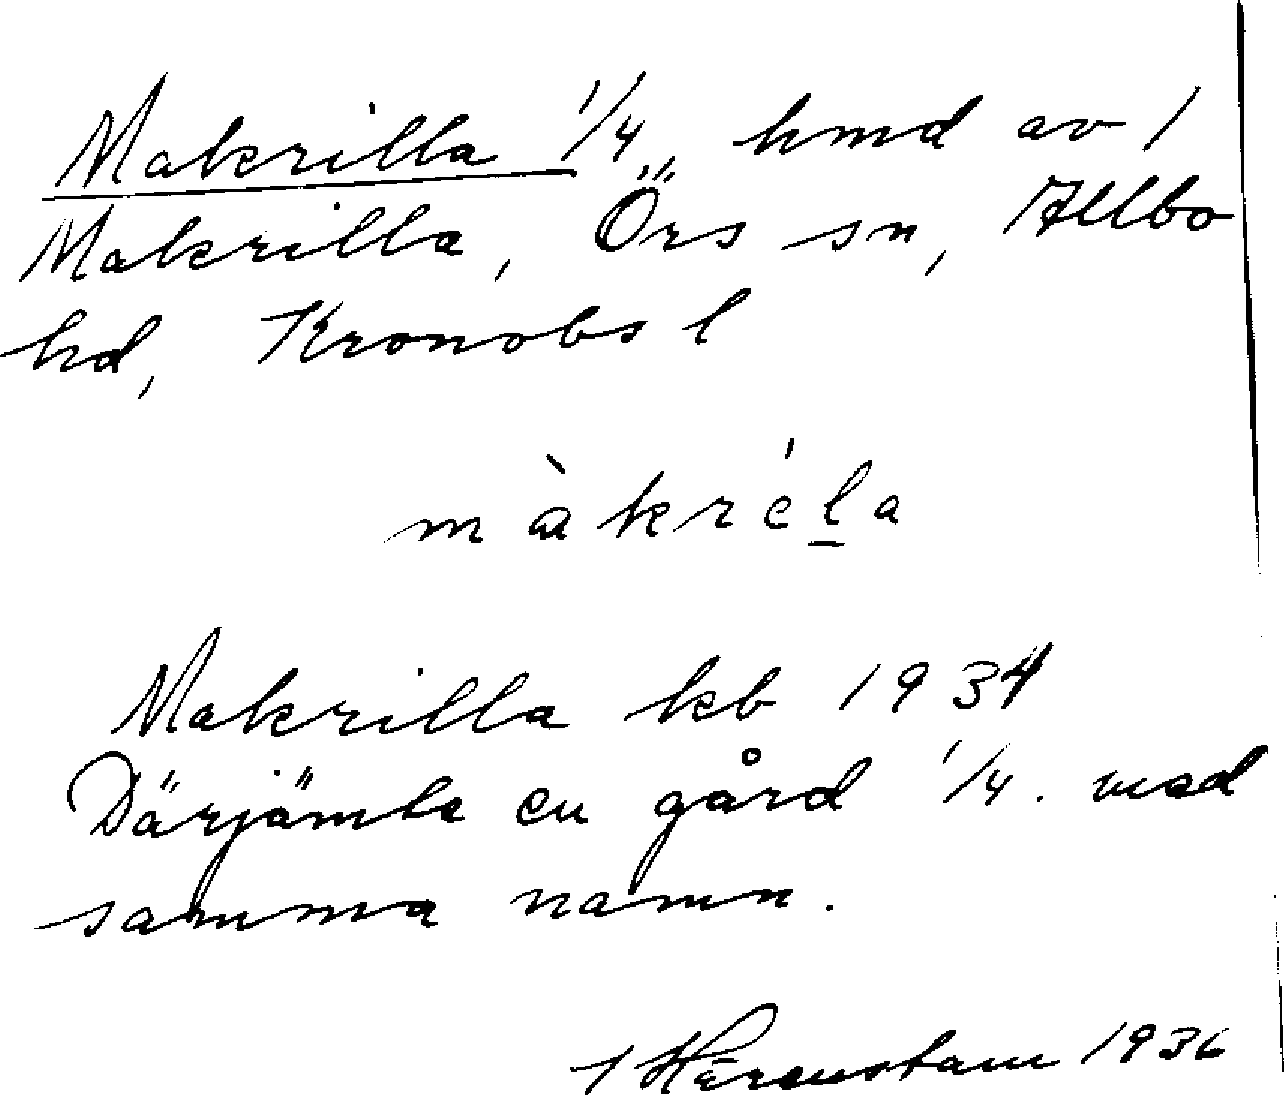 Makrilla 1/4 hmd av 1
Makrilla, Örs sn, Allbo
hd, Kronobs l
màkréla
Makrilla kb 1934
Därjämte en gård 1/4. med
samma namn.
1936